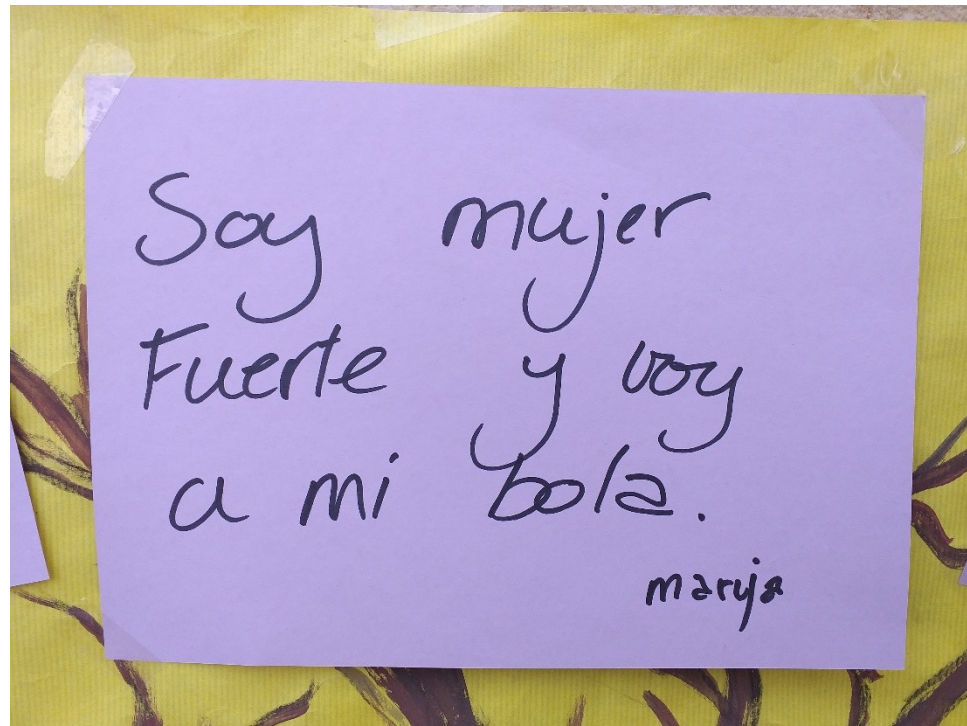 Soy mujer
Fuerte y voy
a mi bola.
maruja